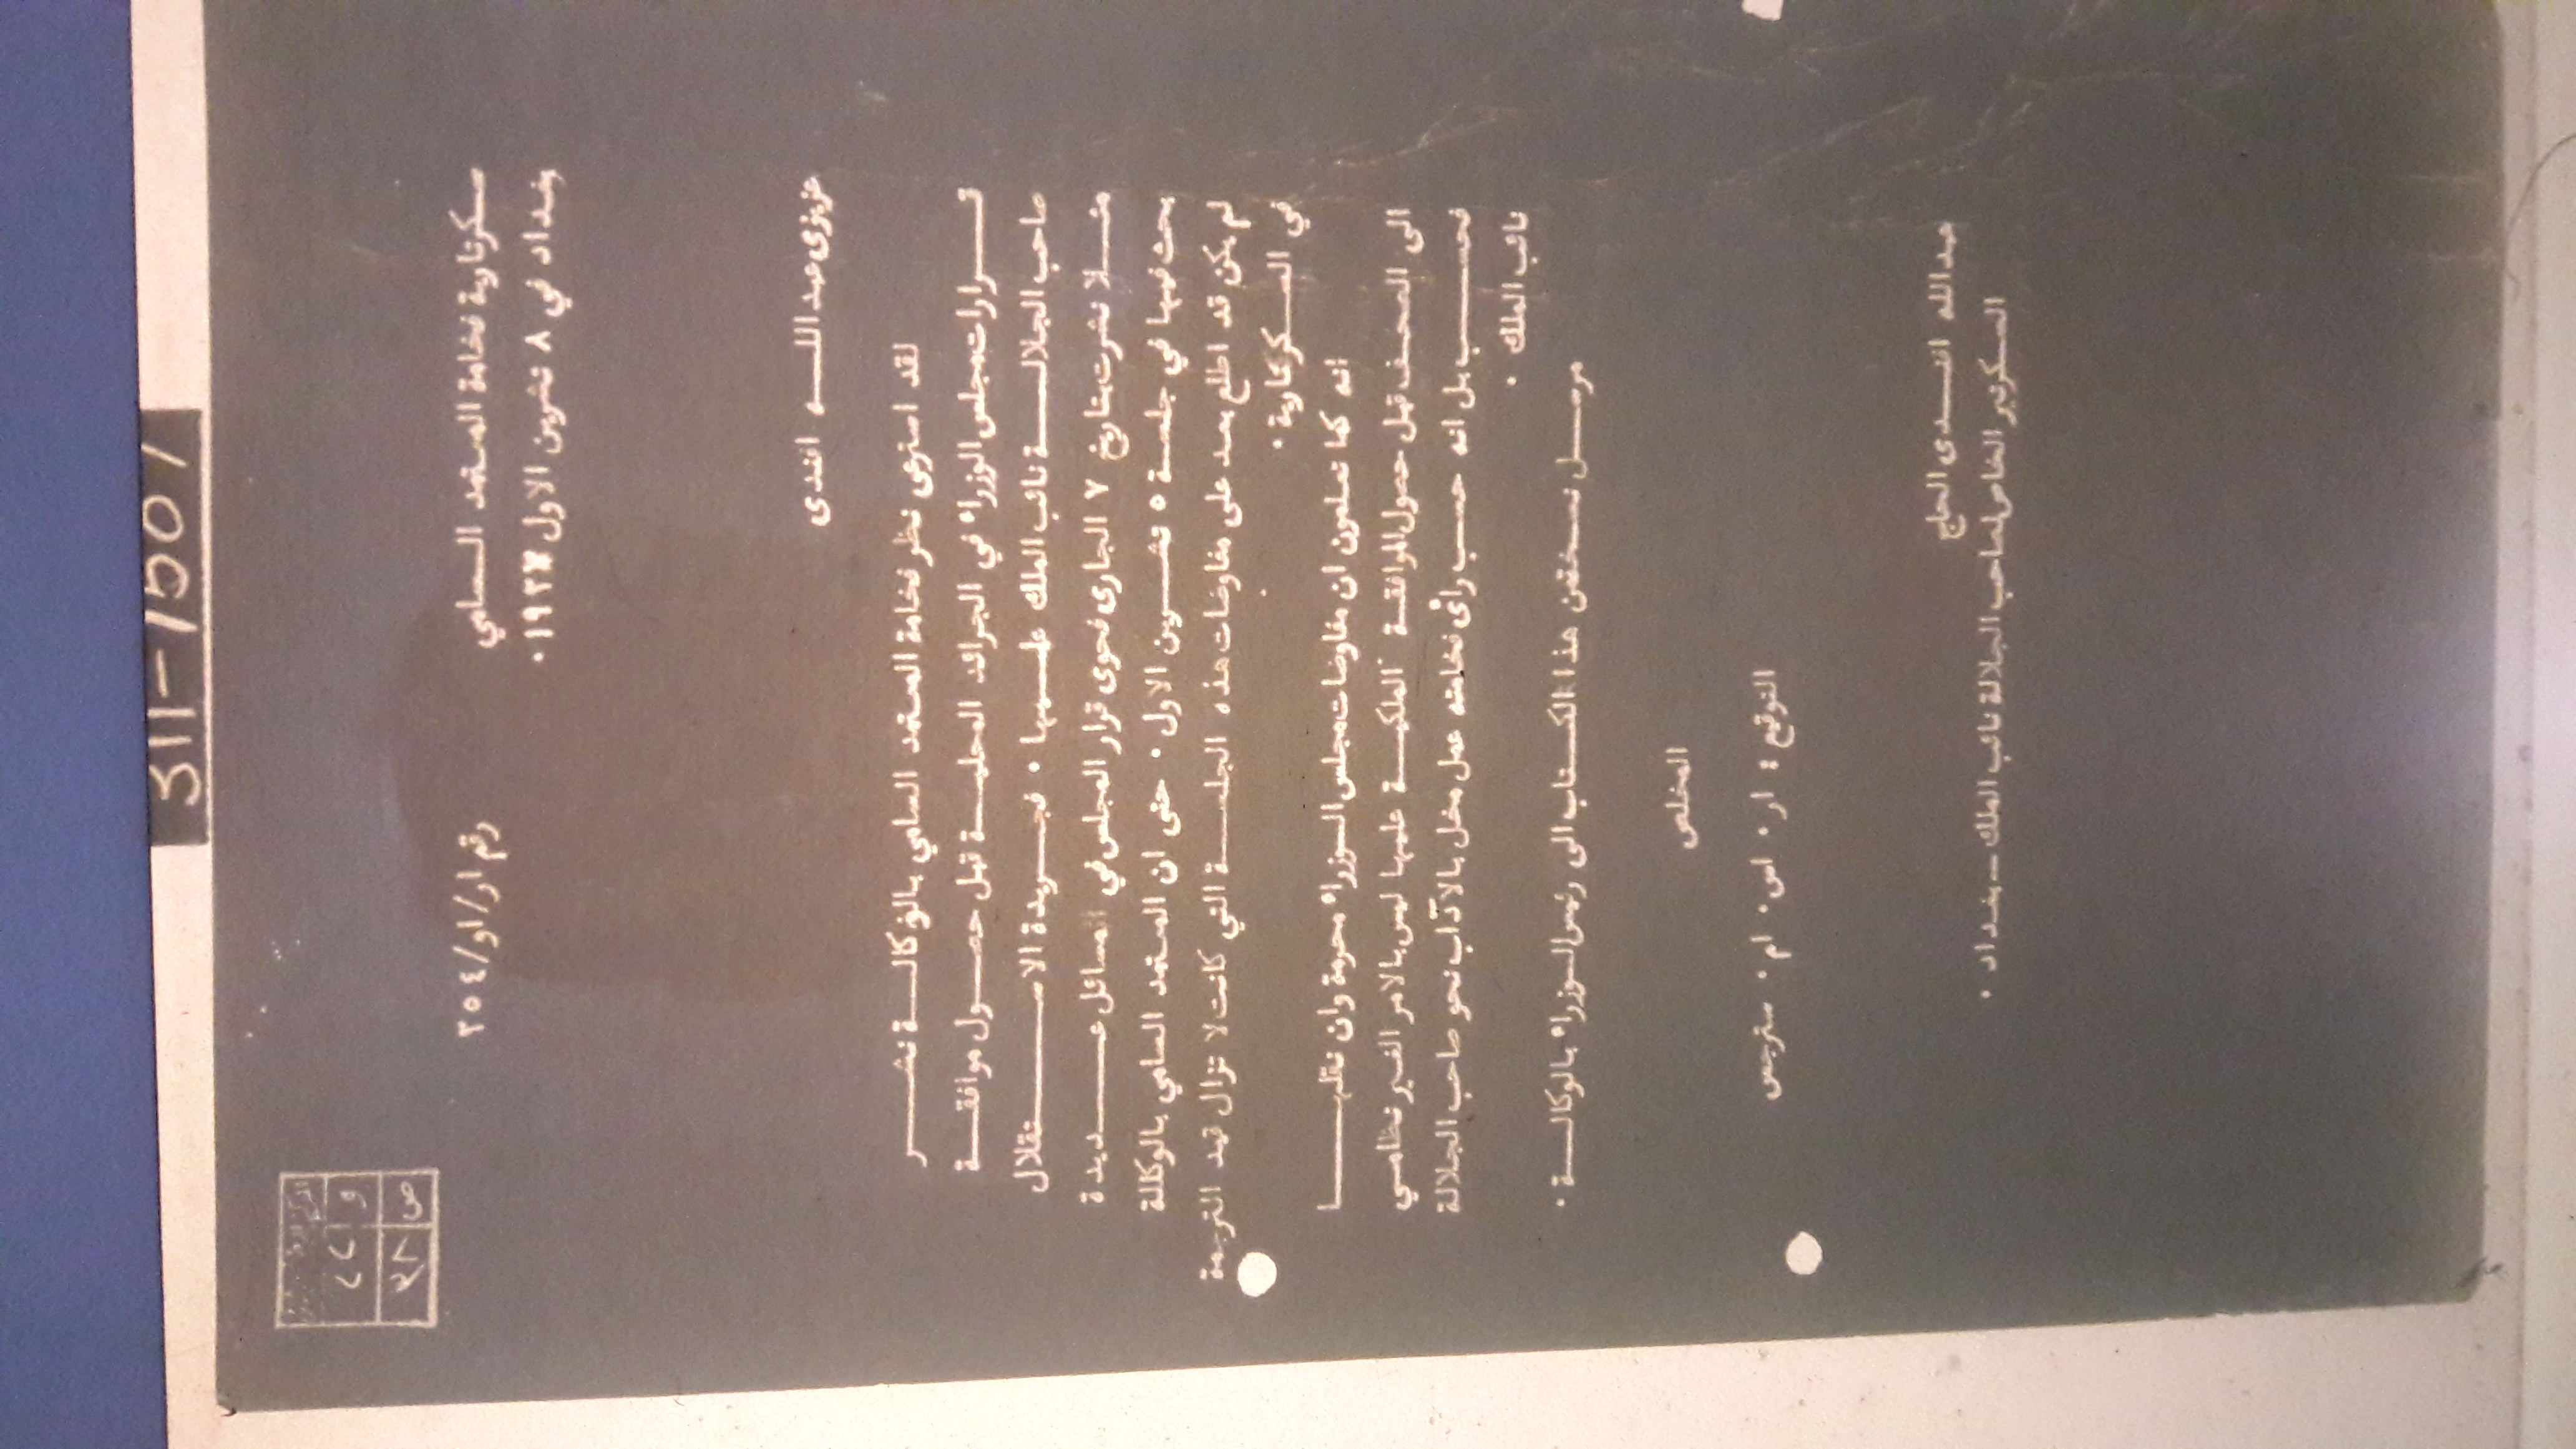 311-1501
و ٢٢
ص ٢٨
سكرتارية فخامة المعتمد السامي
رقم ار/او/٢٥٤
بغداد في ٨ تشرين الاول ١٩٢٧.
عزيزى عبد اللـه افندى
لقد استرعى نظر فخامة المعتمد السامي بالوكالـة نشـر
قـرارات مجلس الوزراء في الجرائد المحليـة قبل حصـول موافقـة
صاحب الجلالـة نائب الملك علـيها . فجـريدة الاسـتقلال
مثـلا نشرت بتاريخ ٧ الجارى فحوى قرار المجلس في المسائل عـديدة
بحث فيها في جلسـة ٥ تشـرين الاول . حتى ان المعتمد السامي بالوكالة
لم يكن قد اطلع بعد على مفاوضات هذه الجلسـة التي كانت لا تزال قيد الترجمة
في السـكرتارية .
انه كما تعلمون ان مفاوضات مجلس الـوزراء محرمة وان نقلهـا
الى الصحف قبل حصول الموافقـة الملكيـة عليها ليس بالامر الغير نظامـي
فحسـب بل انه حسـب رأى فخامته عمل مخل بالآداب نحو صاحب الجلالة
نائب الملك .
مرسـل نسـختين هذا الكـتاب الى رئيس الـوزراء بالوكالـة .
المخلص
التوقيع : ار . اس . ام . سترجس
عبد الله افـندى الحاج
السـكرتير الخاص لصاحب الجلالة نائب الملك - بغـداد .